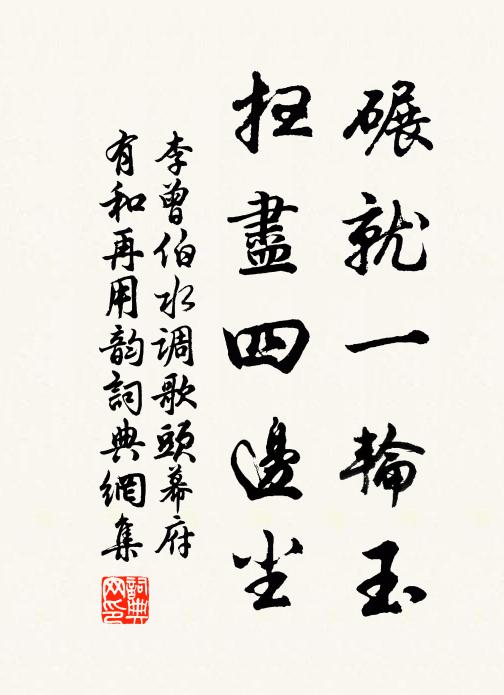 碾就一輪玉
扫盡四邊尘
李曾伯水调歌頭幕府
有和再用韵詞典網集
詞典
网印